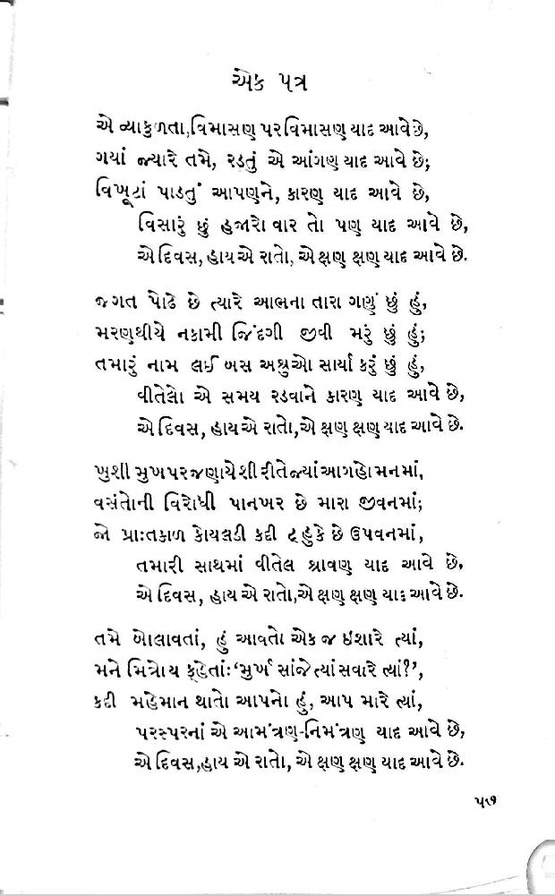 એક પત્ર
એ વ્યાકુળતા,વિમાસણ પર વિમાસણ યાદ આવે છે,
ગયાં જ્યારે તમે, રડતું એ આંગણ યાદ આવે છે;
વિખૂટાં પાડતું આપણને, કારણ યાદ આવે છે,
વિસારું છું હજારો વાર તો પણ યાદ આવે છે,
એ દિવસ, હાય એ રાતો, એ ક્ષણ ક્ષણ યાદ આવે છે.
જગત પોઢે છે ત્યારે આભના તારા ગણું છું હું,
મરણથીયે નકામી જિંદગી જીવી મરું છું હું;
તમારું નામ લઈ બસ અશ્રુઓ સાર્યા કરું છું હું,
વીતેલો એ સમય રડવાને કારણ યાદ આવે છે,
એ દિવસ, હાય એ રાતો, એ ક્ષણ ક્ષણ યાદ આવે છે.
ખુશી મુખ પર જણાયે શી રીતે જ્યાં આગ હો મનમાં,
વસંતોની વિરોધી પાનખર છે મારા જીવનમાં;
જો પ્રાઃતકાળ કોયલડી કદી ટહુકે છે ઉપવનમાં,
તમારી સાથમાં વીતેલ શ્રાવણ યાદ આવે છે,
એ દિવસ, હાય એ રાતો,એ ક્ષણ ક્ષણ યાદ આવે છે.
તમે બોલાવતાં, હું આવતો એક જ ઇશારે ત્યાં,
મને મિત્રોય કહેતાં:‘મુર્ખ સાંજે ત્યાં સવારે ત્યાં?’,
કદી મહેમાન થાતો આપનો હું, આપ મારે ત્યાં,
પરસ્પરનાં એ આમંત્રણ-નિમંત્રણ યાદ આવે છે,
એ દિવસ,હાય એ રાતો, એ ક્ષણ ક્ષણ યાદ આવે છે.